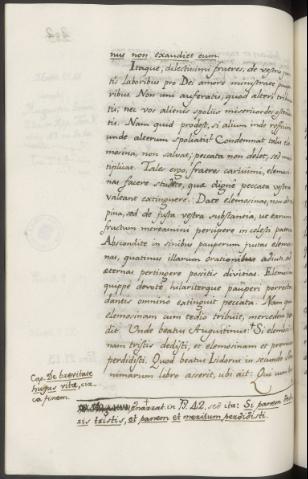 nus non exaudiet eum.
Itaque, dilectissimi fratres, de vestris jus-
tis Laboribus pro Dei amore ministrate paupe-
ribus. Non uni auferatis, quod alteri tribua-
tis; nec vos alieno spolio misericordes
tis. Nam quid prodest, si alium inde
unde alterum spoliatis? Condemnat talis ele-
mosina, non salvat; peccata non delet, sed mul-
tiplicat. Tale ergo, fratres carissimi, elemosi-
nas facere studete, quæ dignè peccata vestra
valeant extinguere. Date elemosinas, non de ra-
pina, sed de justa vestra substantia, ut earum
fructum mereamini percipere in celesti patria.
Abscondite in sinibus pauperum justas elemosi-
nas, quatinus illarum orationibus adiuti, ad
eternas pertingere possitis divitias. Elemosina
quippè devotè hilariterque pauperi porrecta
dantis omnino extinguit peccata. Nam qui
elemosinam cum tedio tribuit, mercedem per-
dit. Unde beatus Augustinus: Si elemosi-
nam tristis dedisti, et elemosinam et premium
perdidisti. Quod beatus Isidorus in secundo
nimarum libro asserit, ubi ait: Qui
Cap. De brevitate
hujus vitæ, cir-
ca finem.
in B. 42, sed ita: Si panem dede-
ris tristis, et panem et meritum perdidisti.